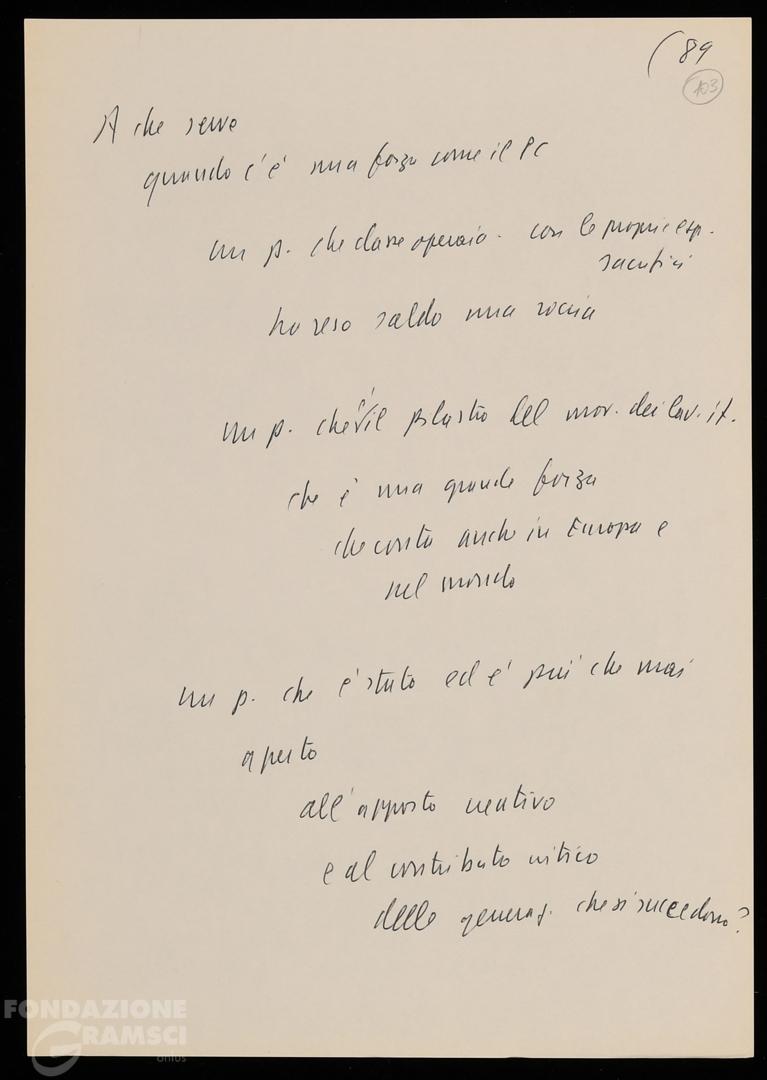 (89
103
A che serve
quando c'è una forza come il PC
un p. che classe operaia. con le proprie esp.
sacrifici
ha reso saldo una roccia
un p. che è il pilastro del mov. dei lav. it.
che è una grande forza
che conta anche in Europa e
nel mondo
un p. che è stato ed è più che mai
aperto
all'apporto creativo
e al contributo critico
delle generaz. che si succedono?
FONDAZIONE
GRAMSCI
onlus